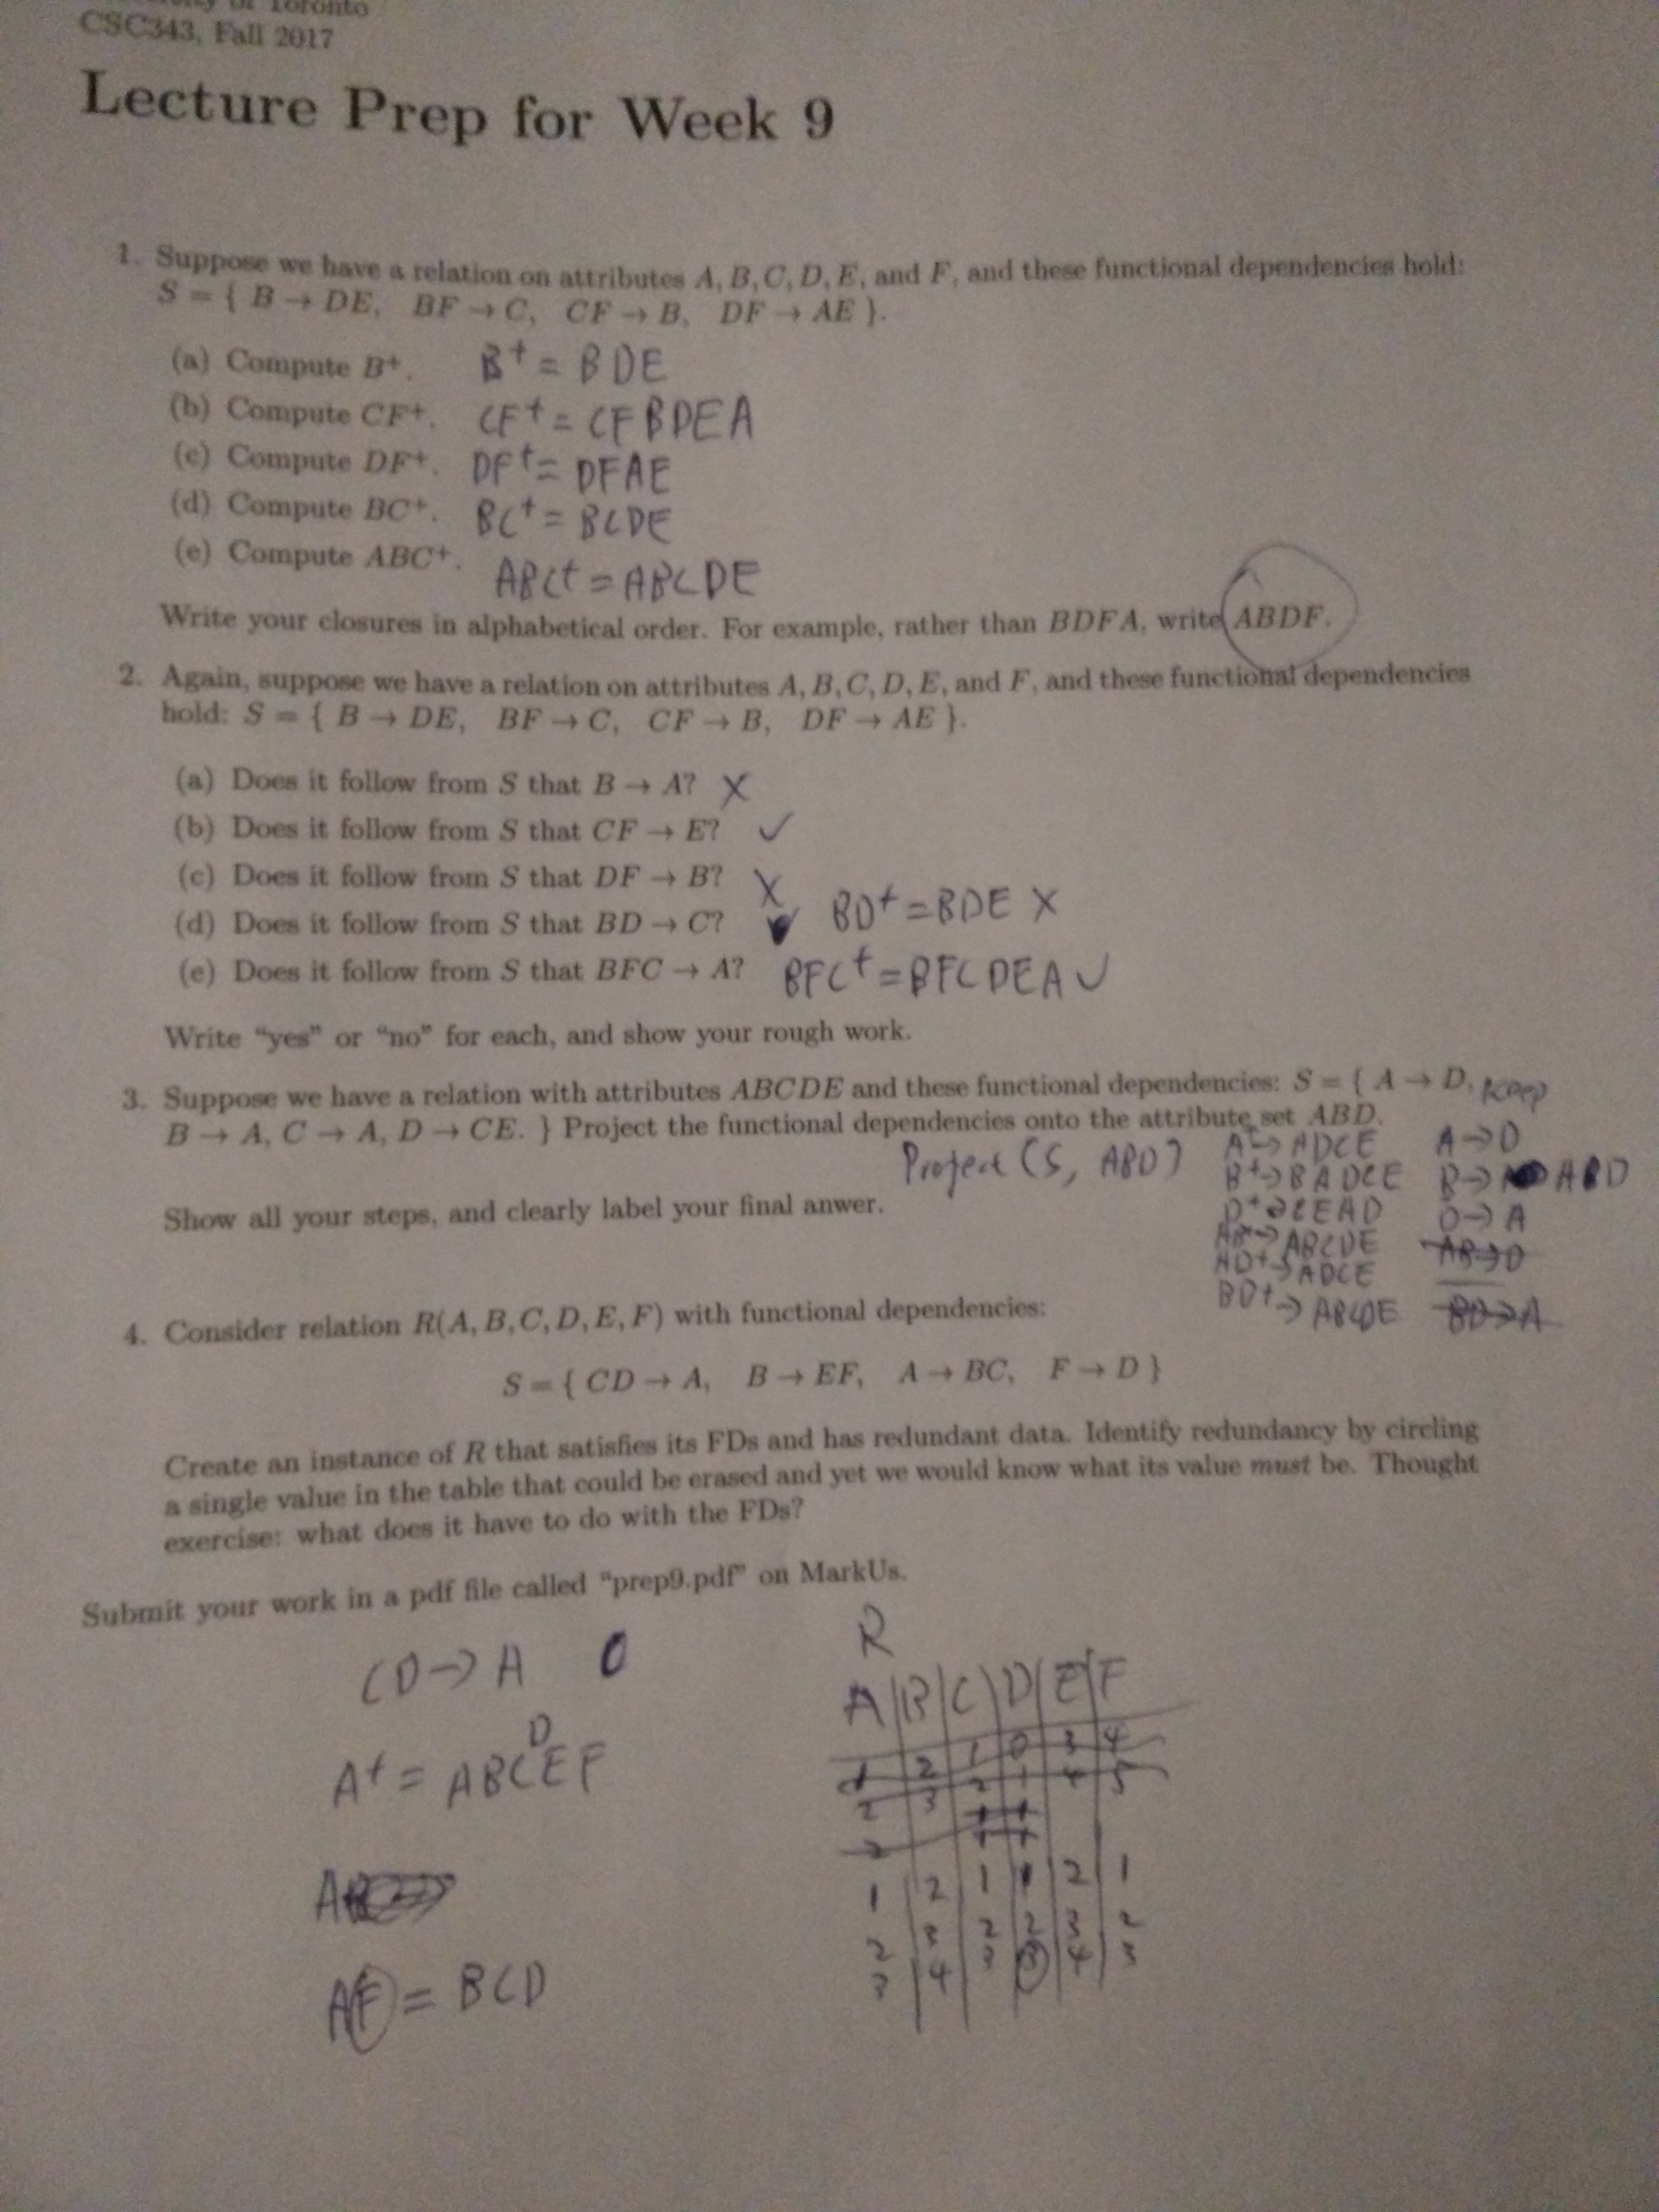 Toronto
CSC343, Fall 2017
Lecture Prep for Week 9
1. Suppose we have a relation on attributes A, B, C, D, E, and F, and these functional dependencies hold:
S = { B → DE, BF → C, CF → B, DF → AE }.
(a) Compute B+. B+ = BDE
(b) Compute CF+. CF+ = CFBDEA
(c) Compute DF+. DF+ = DFAE
(d) Compute BC+. BC+ = BCDE
(e) Compute ABC+. ABC+ = ABCDE
Write your closures in alphabetical order. For example, rather than BDFA, write ABDF.
2. Again, suppose we have a relation on attributes A, B, C, D, E, and F, and these functional dependencies
hold: S = { B → DE, BF → C, CF → B, DF → AE }.
(a) Does it follow from S that B → A? X
(b) Does it follow from S that CF → E? ✓
(c) Does it follow from S that DF → B? X
(d) Does it follow from S that BD → C? BD+ = BDE X
(e) Does it follow from S that BFC → A? BFC+ = BFCDEA ✓
Write “yes” or “no” for each, and show your rough work.
3. Suppose we have a relation with attributes ABCDE and these functional dependencies: S = { A → D, keep
B → A, C → A, D → CE. } Project the functional dependencies onto the attribute set ABD.
Project (S, ABD) A+→ADCE A→D
B+→BADCE B→ABD
Show all your steps, and clearly label your final anwer. D+→CEAD D→A
AB+→ABCDE AB→D
AD+→ADCE
BD+→ABCDE BD→A
4. Consider relation R(A, B, C, D, E, F) with functional dependencies:
S = { CD → A, B → EF, A → BC, F → D }
Create an instance of R that satisfies its FDs and has redundant data. Identify redundancy by circling
a single value in the table that could be erased and yet we would know what its value must be. Thought
exercise: what does it have to do with the FDs?
Submit your work in a pdf file called “prep9.pdf” on MarkUs.
R
CD→A
A B C D E F
1 2 1 0 3 4
2 3 2 1 4 5
D
A+ = ABCEF
1 2 1 1 2 1
2 3 2 2 3 2
3 4 3 3 4 3
AF = BCD